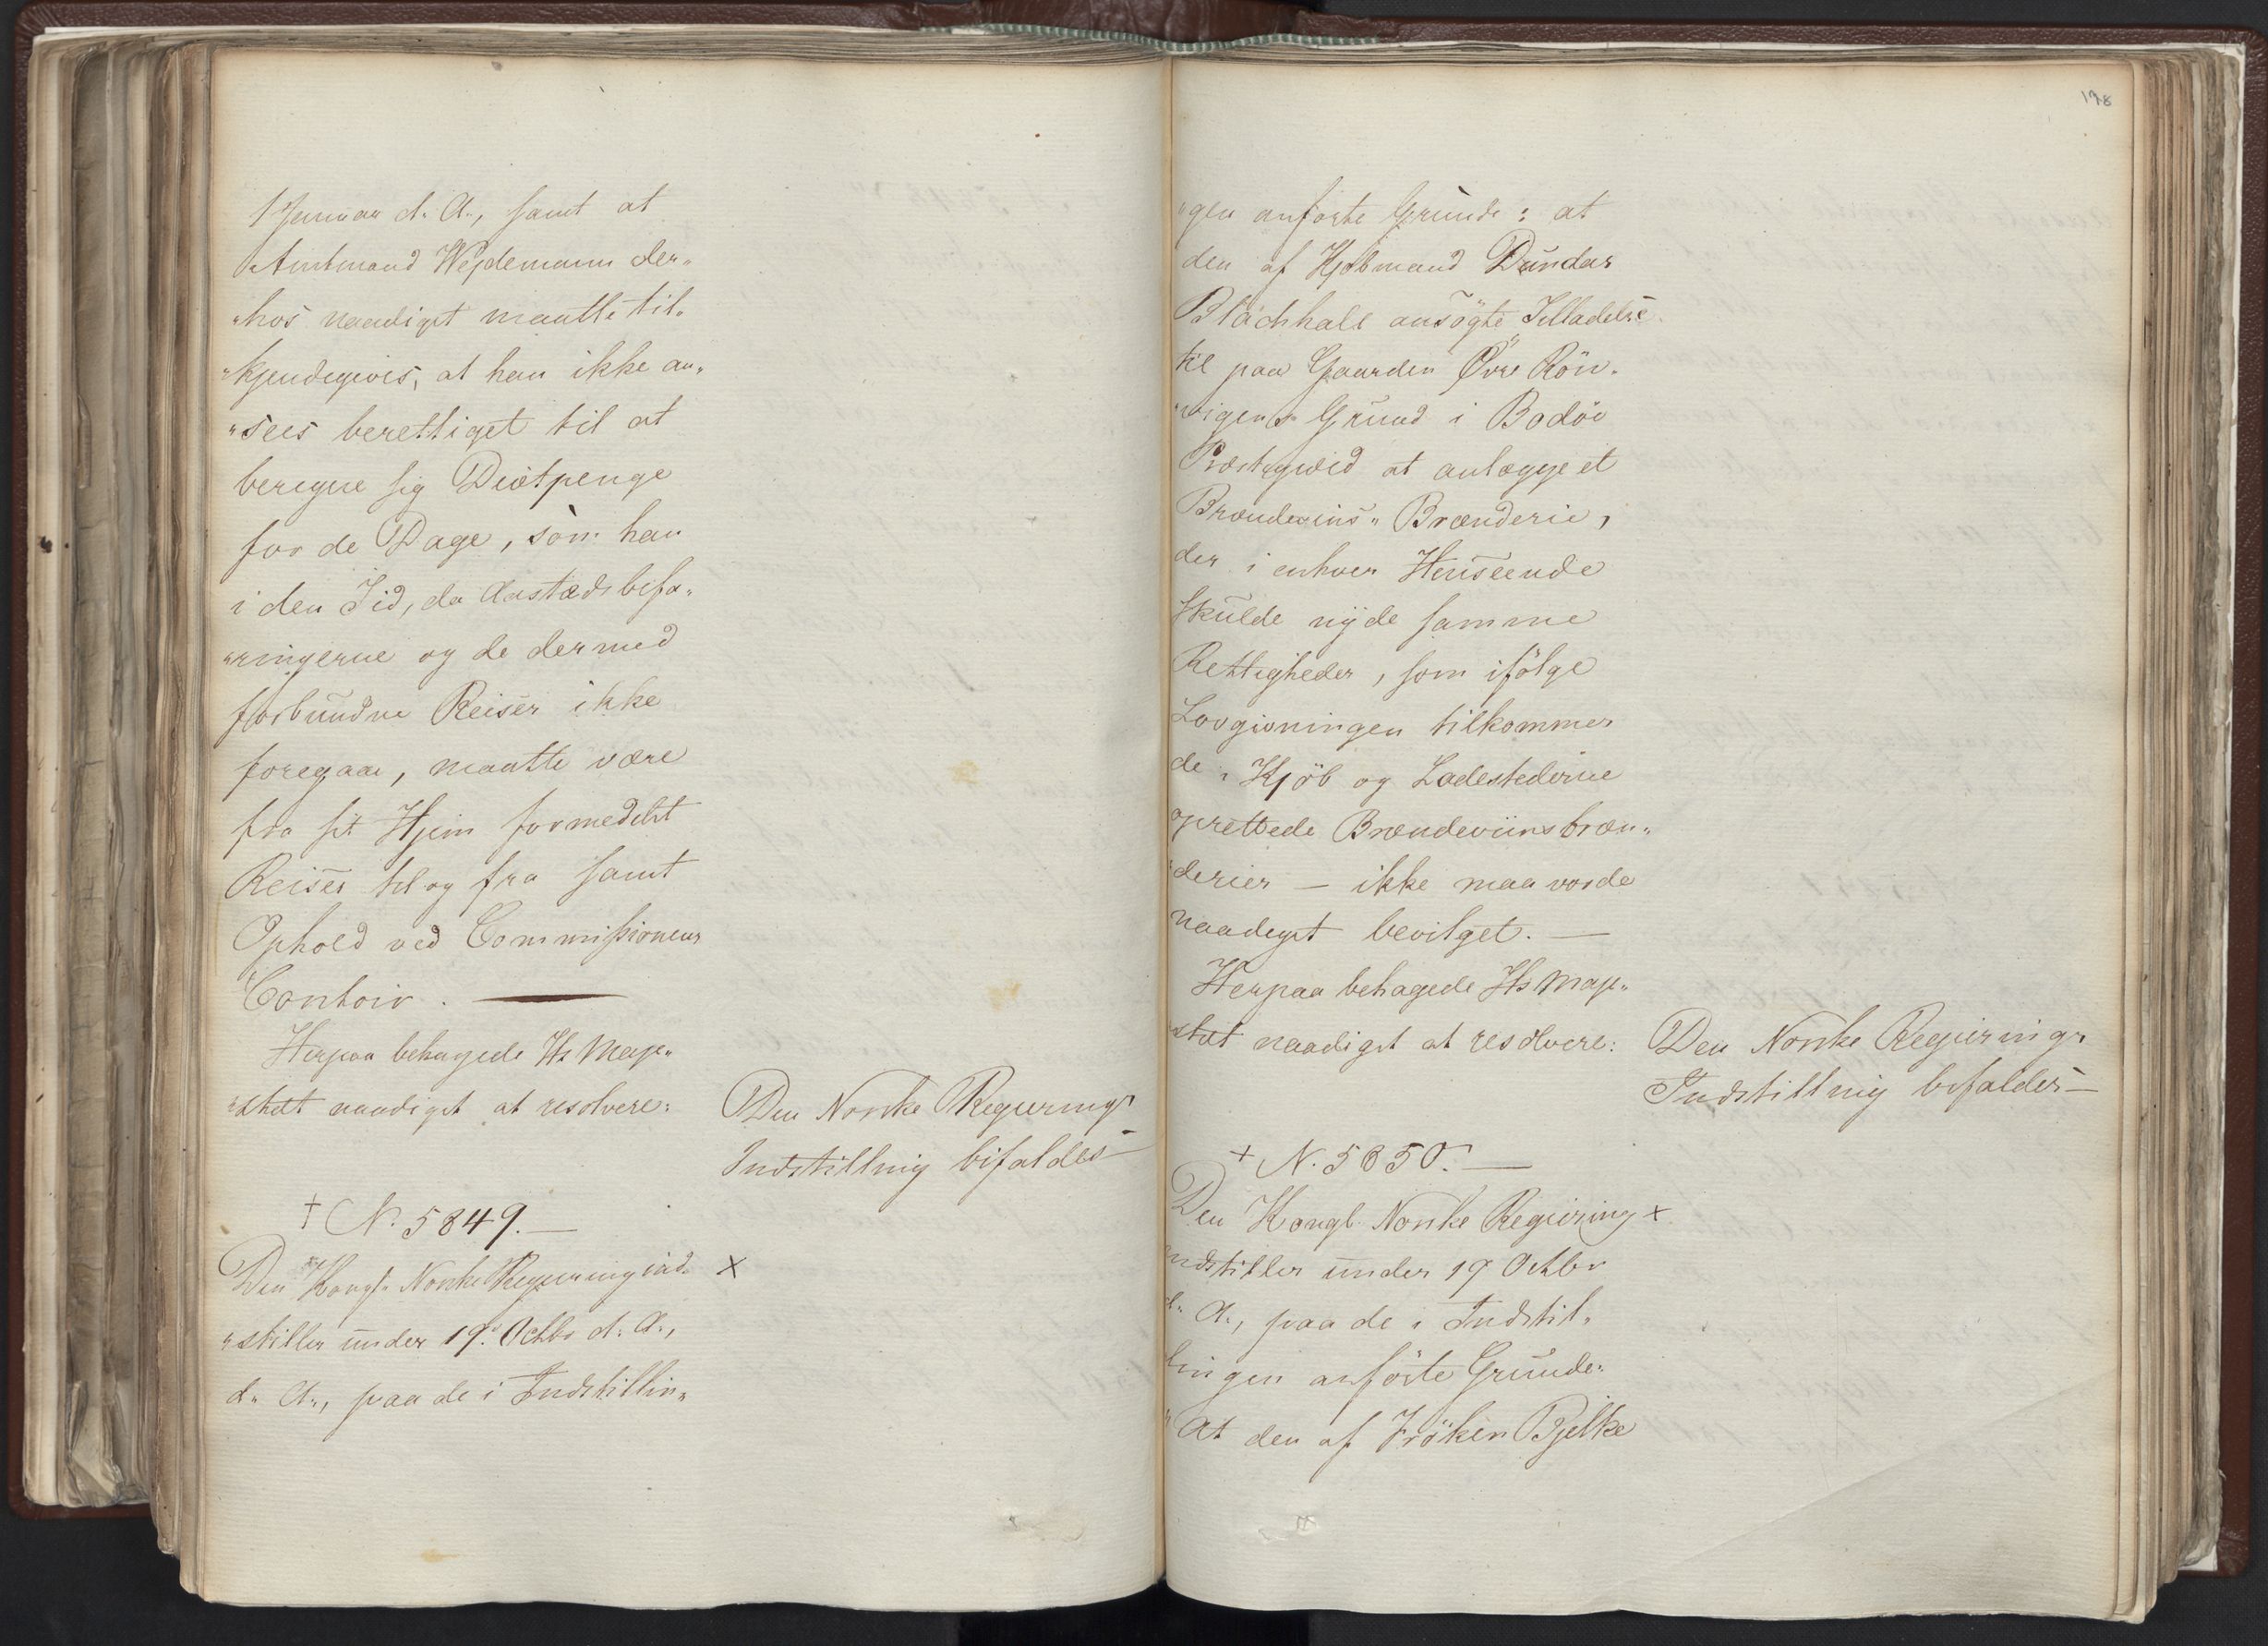 1 Januar d. A., samt at
Amtmand Wejdemann der„
„hos naadigst maatte til„
„kjendegives, at han ikke an„
„sees berettiget til at
beregne sig Diætpenge
for de Dage, som han
i den Tid, da Aastedsbefa„
„ringerne og de dermed
forbundne Reiser ikke
foregaae, maatte være
fra sit Hjem formedelst
Reiser til og fra samt
Ophold ved Commissionens
Contoir. —
Herpaa behagede Hs Maje„
„stæt naadigst at resolvere:
Den Norske Regjerings
Indstilling bifaldes —
† N. 5849. —
Den Kongl. Norske Regjering ind„ x
„stiller under 19. Octbr d. A.,
d. A., paa de i Indstillin„
198
„gen anførte Grunde: at
den af Kjøbmand Dundas
ansøgte Tilladelse
til paa Gaarden Øvre Rön„
„vigens Grund i Bodøe
Præstegield at anlægge et
Brændeviins„Brænderie,
der i enhver Henseende
skulde nyde samme
Rettigheder, som ifølge
Lovgivningen tilkommer
de i Kjöb og Ladestederne
oprettede Brændeviinsbræn„
„derier — ikke maa vorde
naadigst bevilget. —
Herpaa behagede Hs Maje„
„stæt naadigst at resolvere:
Den Norske Regjerings
Indstilling bifaldes —
+ N. 5850. —
Den Kongl. Norske Regjering x
indstiller under 19 Octbr
d. A., paa de i Indstil„
lingen anförte Grunde:
„At den af Fröken Bjelke